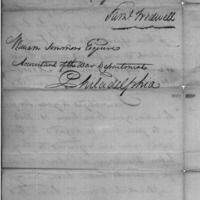 Saml Tredwell
William Simmons Esquire
Accountant of the War Department
Philadelphia